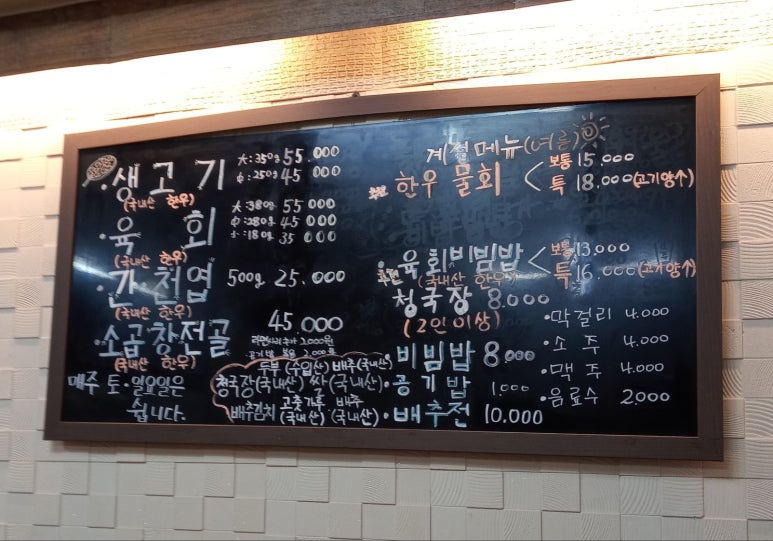 ·생고기 大:350g 55.000
(국내산 한우) 中:250g 45 000
·육회 大:380g 55 000
中:280g 45 000
小:180g 35 000
(국내산 한우)
간·천엽 500g 25.000
(국내산 한우)
·소곱창전골 45.000
(국내산 한우) 라면사리 추가 2.000원
공기밥 볶음 2.000원
매주 토·일요일은
쉽니다.
두부(수입산) 배추(국내산)
청국장(국내산) 쌀(국내산)
배추김치 고춧가루(국내산) 배추(국내산)
계절메뉴(여름)
추천 한우 물회 < 보통 15.000
특 18.000(고기양↑)
·육회비빔밥 < 보통 13.000
추천 (국내산 한우) 특 16.000(고기양↑)
청국장 8.000
(2인이상)
·비빔밥 8000
·공기밥 1.000
·배추전 10.000
·막걸리 4.000
·소주 4.000
·맥주 4.000
·음료수 2.000